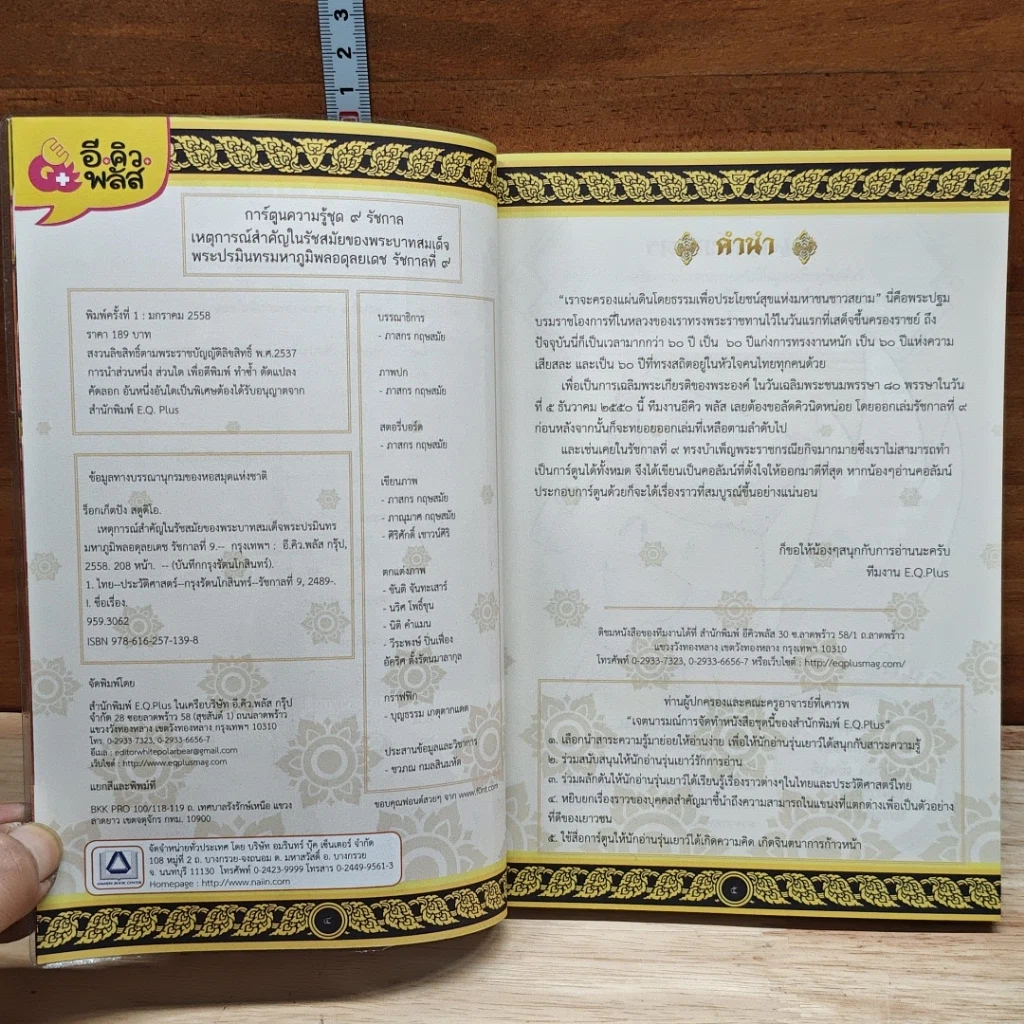 3
2
1
อี.คิว.
พลัส
การ์ตูนความรู้ชุด ๙ รัชกาล
เหตุการณ์สำคัญในรัชสมัยของพระบาทสมเด็จ
พระปรมินทรมหาภูมิพลอดุลยเดช รัชกาลที่ ๙
พิมพ์ครั้งที่ 1 : มกราคม 2558
ราคา 189 บาท
สงวนลิขสิทธิ์ตามพระราชบัญญัติลิขสิทธิ์ พ.ศ.2537
การนำส่วนหนึ่ง ส่วนใด เพื่อตีพิมพ์ ทำซ้ำ ดัดแปลง
คัดลอก อันหนึ่งอันใดเป็นพิเศษต้องได้รับอนุญาตจาก
สำนักพิมพ์ E.Q. Plus
ข้อมูลทางบรรณานุกรมของหอสมุดแห่งชาติ
ร็อกเก็ตปัง สตูดิโอ.
เหตุการณ์สำคัญในรัชสมัยของพระบาทสมเด็จพระปรมินทร
มหาภูมิพลอดุลยเดช รัชกาลที่ 9.-- กรุงเทพฯ : อี.คิว.พลัส กรุ๊ป,
2558. 208 หน้า. -- (บันทึกกรุงรัตนโกสินทร์).
1. ไทย--ประวัติศาสตร์--กรุงรัตนโกสินทร์--รัชกาลที่ 9, 2489-.
I. ชื่อเรื่อง.
959.3062
ISBN 978-616-257-139-8
จัดพิมพ์โดย
สำนักพิมพ์ E.Q.Plus ในเครือบริษัท อี.คิว.พลัส กรุ๊ป
จำกัด 28 ซอยลาดพร้าว 58 (สุขสันต์ 1) ถนนลาดพร้าว
แขวงวังทองหลาง เขตวังทองหลาง กรุงเทพฯ 10310
โทร. 0-2933-7323, 0-2933-6656-7
อีเมล : editorwhitepolarbear@gmail.com
เว็บไซต์ : http://www.eqplusmag.com
แยกสีและพิมพ์ที่
BKK PRO 100/118-119 ถ. เทศบาลรังรักษ์เหนือ แขวง
ลาดยาว เขตจตุจักร กทม. 10900
จัดจำหน่ายทั่วประเทศ โดย บริษัท อมรินทร์ บุ๊ค เซ็นเตอร์ จำกัด
108 หมู่ที่ 2 ถ. บางกรวย-จงถนอม ต. มหาสวัสดิ์ อ. บางกรวย
จ. นนทบุรี 11130 โทรศัพท์ 0-2423-9999 โทรสาร 0-2449-9561-3
Homepage : http://www.naiin.com
AMARIN BOOK CENTER
บรรณาธิการ
- ภาสกร กฤษสมัย
ภาพปก
- ภาสกร กฤษสมัย
สตอรี่บอร์ด
- ภาสกร กฤษสมัย
เขียนภาพ
- ภาสกร กฤษสมัย
- ภาณุมาศ กฤษสมัย
- ศิริศักดิ์ เชาวน์ศิริ
ตกแต่งภาพ
- ขันติ จันทะเสาร์
- นริศ โพธิ์ขุน
- นิติ คำแมน
- วีระพงษ์ ปิ่นเฟื่อง
อัคริศ ตั้งรัตนมาลากุล
กราฟฟิก
- บุญธรรม เกตุตากแดด
ประสานข้อมูลและวิชาการ
- ชวภณ กมลสินมหัต
ขอบคุณฟอนต์สวยๆ จาก www.f0nt.com
๔
คำนำ
"เราจะครองแผ่นดินโดยธรรมเพื่อประโยชน์สุขแห่งมหาชนชาวสยาม" นี่คือพระปฐม
บรมราชโองการที่ในหลวงของเราทรงพระราชทานไว้ในวันแรกที่เสด็จขึ้นครองราชย์ ถึง
ปัจจุบันนี้ก็เป็นเวลามากกว่า ๖๐ ปี เป็น ๖๐ ปีแก่งการทรงงานหนัก เป็น ๖๐ ปีแห่งความ
เสียสละ และเป็น ๖๐ ปีที่ทรงสถิตอยู่ในหัวใจคนไทยทุกคนด้วย
เพื่อเป็นการเฉลิมพระเกียรติของพระองค์ ในวันเฉลิมพระชนมพรรษา ๘๐ พรรษาในวัน
ที่ ๕ ธันวาคม ๒๕๕๐ นี้ ทีมงานอีคิว พลัส เลยต้องขอลัดคิวนิดหน่อย โดยออกเล่มรัชกาลที่ ๙
ก่อนหลังจากนั้นก็จะทยอยออกเล่มที่เหลือตามลำดับไป
และเช่นเคยในรัชกาลที่ ๙ ทรงบำเพ็ญพระราชกรณียกิจมากมายซึ่งเราไม่สามารถทำ
เป็นการ์ตูนได้ทั้งหมด จึงได้เขียนเป็นคอลัมน์ที่ตั้งใจให้ออกมาดีที่สุด หากน้องๆอ่านคอลัมน์
ประกอบการ์ตูนด้วยก็จะได้เรื่องราวที่สมบูรณ์ขึ้นอย่างแน่นอน
ก็ขอให้น้องๆสนุกกับการอ่านนะครับ
ทีมงาน E.Q.Plus
ติชมหนังสือของทีมงานได้ที่ สำนักพิมพ์ อีคิวพลัส 30 ซ.ลาดพร้าว 58/1 ถ.ลาดพร้าว
แขวงวังทองหลาง เขตวังทองหลาง กรุงเทพฯ 10310
โทรศัพท์ 0-2933-7323, 0-2933-6656-7 หรือเว็บไซต์ : http://eqplusmag.com/
ท่านผู้ปกครองและคณะครูอาจารย์ที่เคารพ
"เจตนารมณ์การจัดทำหนังสือชุดนี้ของสำนักพิมพ์ E.Q.Plus"
๑. เลือกนำสาระความรู้มาย่อยให้อ่านง่าย เพื่อให้นักอ่านรุ่นเยาว์ได้สนุกกับสาระความรู้
๒. ร่วมสนับสนุนให้นักอ่านรุ่นเยาว์รักการอ่าน
๓. ร่วมผลักดันให้นักอ่านรุ่นเยาว์ได้เรียนรู้เรื่องราวต่างๆในไทยและประวัติศาสตร์ไทย
๔. หยิบยกเรื่องราวของบุคคลสำคัญมาชี้นำถึงความสามารถในแขนงที่แตกต่างเพื่อเป็นตัวอย่าง
ที่ดีของเยาวชน
๕. ใช้สื่อการ์ตูนให้นักอ่านรุ่นเยาว์ได้เกิดความคิด เกิดจินตนาการก้าวหน้า
๕